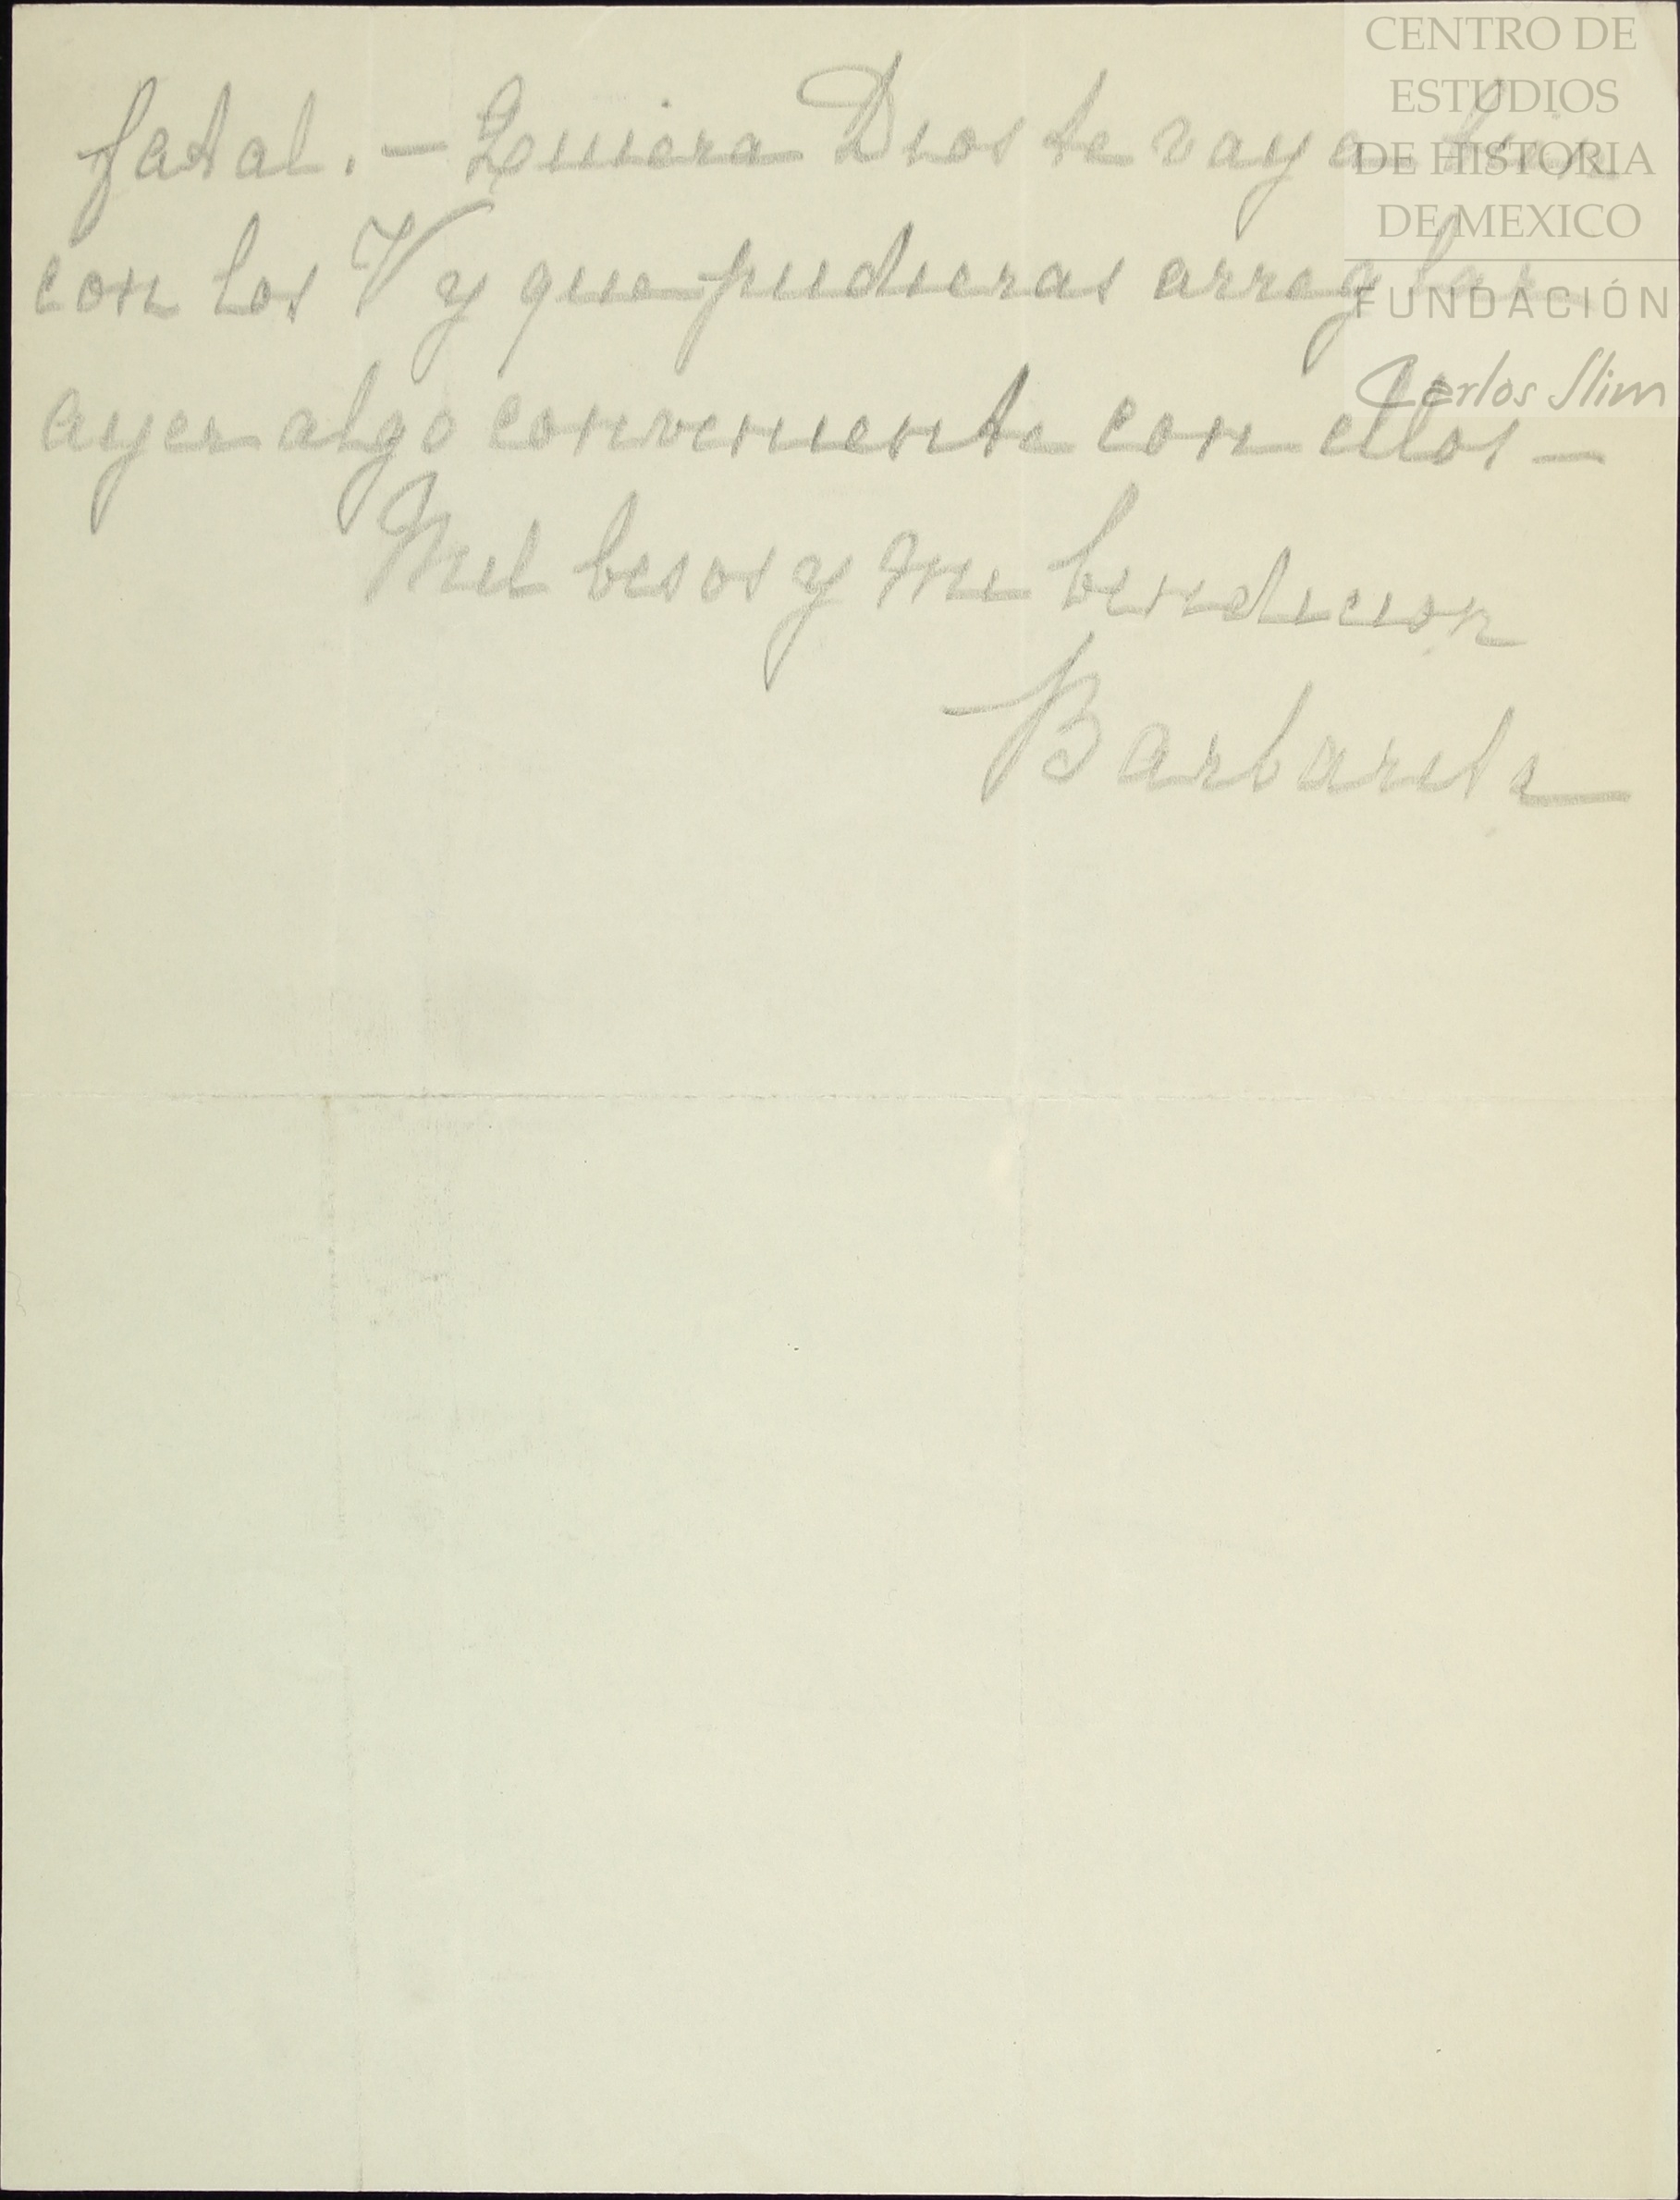 fatal. — Quiera Dios te vaya bien
con los V y que pudieras arreglar
ayer algo conveniente con ellos —
Mil besos y mi bendicion
Barbarita
CENTRO DE
ESTUDIOS
DE HISTORIA
DE MEXICO
FUNDACIÓN
Carlos Slim